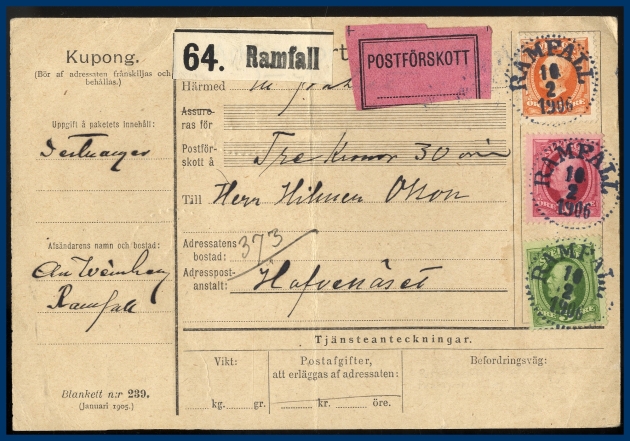 Kupong.
(Bör af adressaten frånskiljas och
behållas.)
Uppgift å paketets innehåll:
Afsändarens namn och bostad:
Ramfall
Blankett n:r 239.
(Januari 1905.)
64. Ramfall
POSTFÖRSKOTT
Härmed
Assure-
ras för
Postför-
skott å
Tre Kronor 30 öre
Till Herr Hilmer Olson
Adressatens
bostad:
373
Adresspost-
anstalt:
Hafvenäset
Tjänsteanteckningar.
Vikt:
kg. gr.
Postafgifter,
att erläggas af adressaten:
kr. öre.
Befordringsväg:
RAMFALL
10
2
1906
RAMFALL
10
2
1906
RAMFALL
10
2
1906